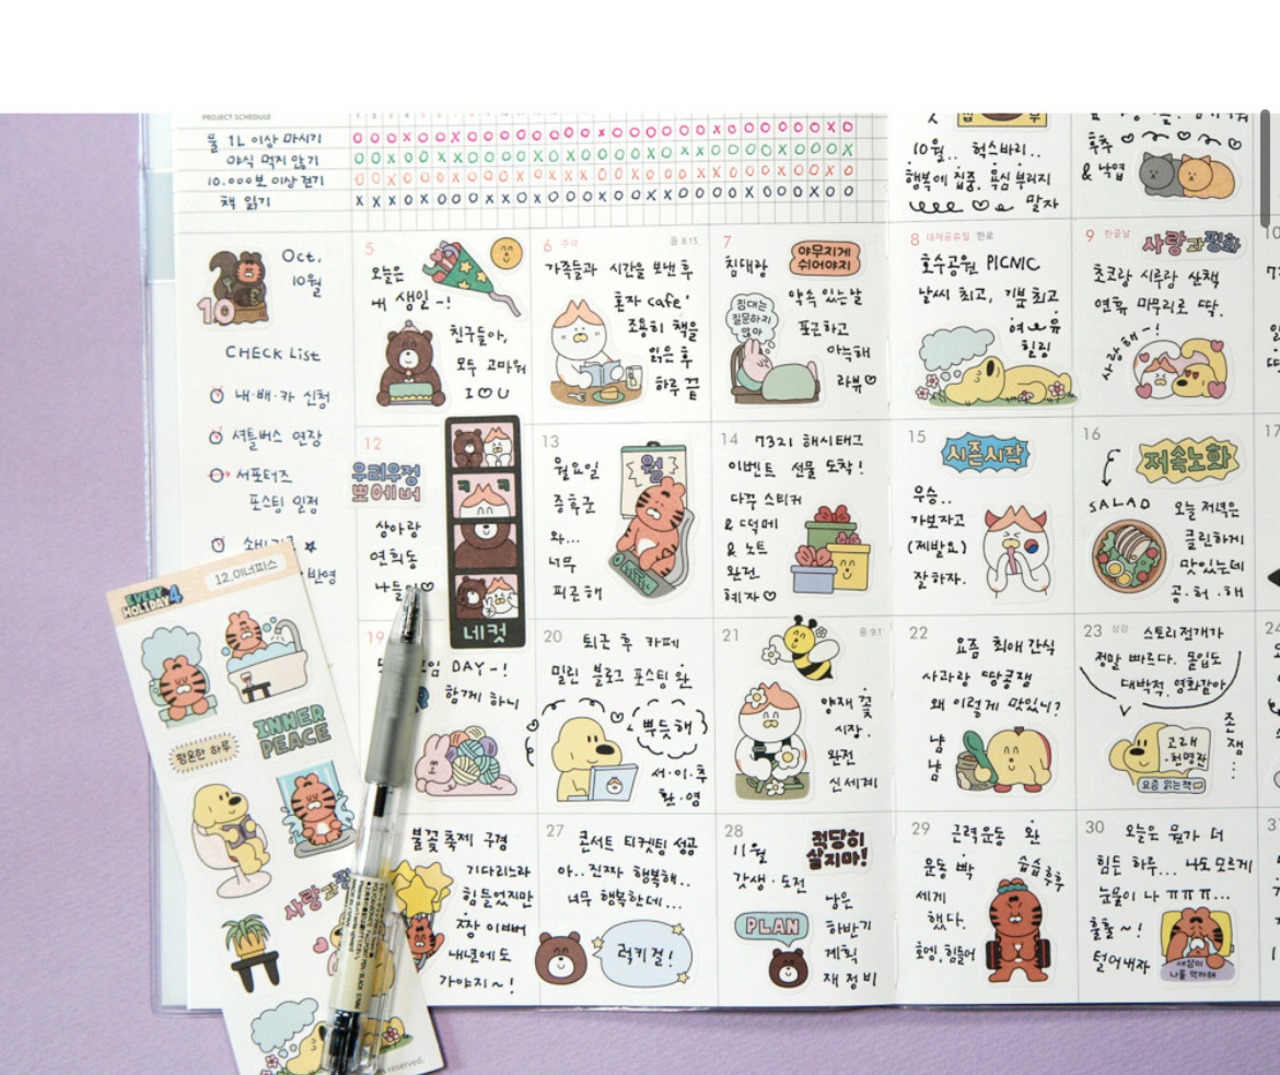 PROJECT SCHEDULE
물 1L 이상 마시기
야식 먹지 않기
10.000보 이상 걷기
책 읽기
10월.. 럭스바리..
행복에 집중. 욕심 부리지
말자
후추
& 낙엽
Oct,
10월
10
CHECK List
내·배·카 신청
셔틀버스 연장
서포터즈
포스팅 일정
반영
5
오늘은
내 생일~!
친구들아,
모두 고마워
I♡U
6 추석
음 8.15
가족들과 시간을 보낸 후
혼자 cafe'
조용히 책을
읽은 후
하루 끝
7
야무지게
쉬어야지
침대랑
약속 있는 날
침대는
질문하지
않아
포근하고
아늑해
라뷰♡
8 대체공휴일 한로
호수공원 PICNIC
날씨 최고, 기분 최고
여유
힐링
9 한글날
사랑과평화
초코랑 시루랑 산책
연휴 마무리로 딱.
사랑해~!
10
12
우리우정
뽀에버
상아랑
연희동
나들이♡
네컷
13
월요일
증후군
와...
너무
피곤해
월
14 7321 해시태그
이벤트 선물 도착!
다꾸 스티커
& 떡메
& 노트
완전
혜자♡
15
시즌시작
우승..
가보자고
(제발요)
잘하자.
16
저속노화
SALAD
오늘 저녁은
클린하게
맛있는데
공·허·해
17
19
DAY~!
함께 하니
20 퇴근 후 카페
밀린 블로그 포스팅 완
뿌듯해
서·이·추
환·영
21
음 9.1
양재 꽃
시장.
완전
신세계
22 요즘 최애 간식
사과랑 땅콩잼
왜 이렇게 맛있니?
냠
냠
23 상강 스토리 전개가
정말 빠르다. 몰입도
대박적. 영화같아
고래
·천명관
요즘 읽는 책
존
잼
24
불꽃축제 구경
기다리느라
힘들었지만
내년에도
가야지~!
27 콘서트 티켓팅 성공
아.. 진짜 행복해..
너무 행복한데...
럭키걸!
28
11월
갓생·도전
적당히
살지마!
PLAN
남은
하반기
계획
재정비
29 근력운동 완
운동 빡
세게
했다.
습습후후
호엥.힘들어
30 오늘은 뭔가 더
힘든 하루... 나도 모르게
눈물이 나 ㅠㅠㅠ...
훌훌~!
털어내자
세상이
나를 억까해
EVERY
HOLIDAY4
12.이너피스
INNER
PEACE
평온한 하루
사랑과평
reserved.